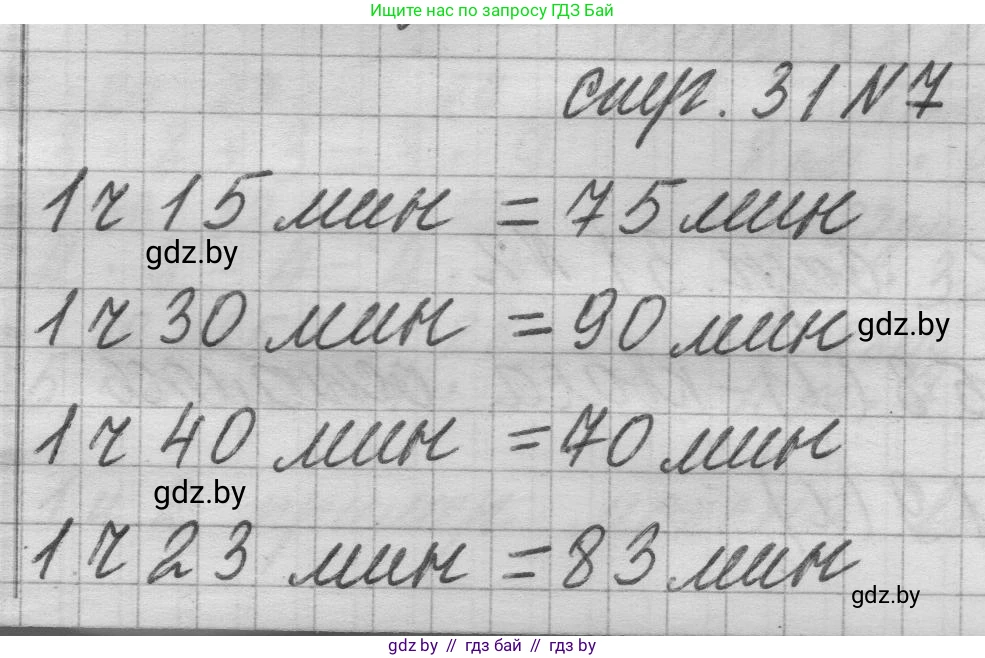 Ищите нас по запросу ГДЗ Бай
стр. 31 N 7
1 ч 15 мин = 75 мин
gdz.by
1 ч 30 мин = 90 мин
gdz.by
1 ч 40 мин = 70 мин
gdz.by
1 ч 23 мин = 83 мин
gdz.by
gdz by // гдз бай // gdz by